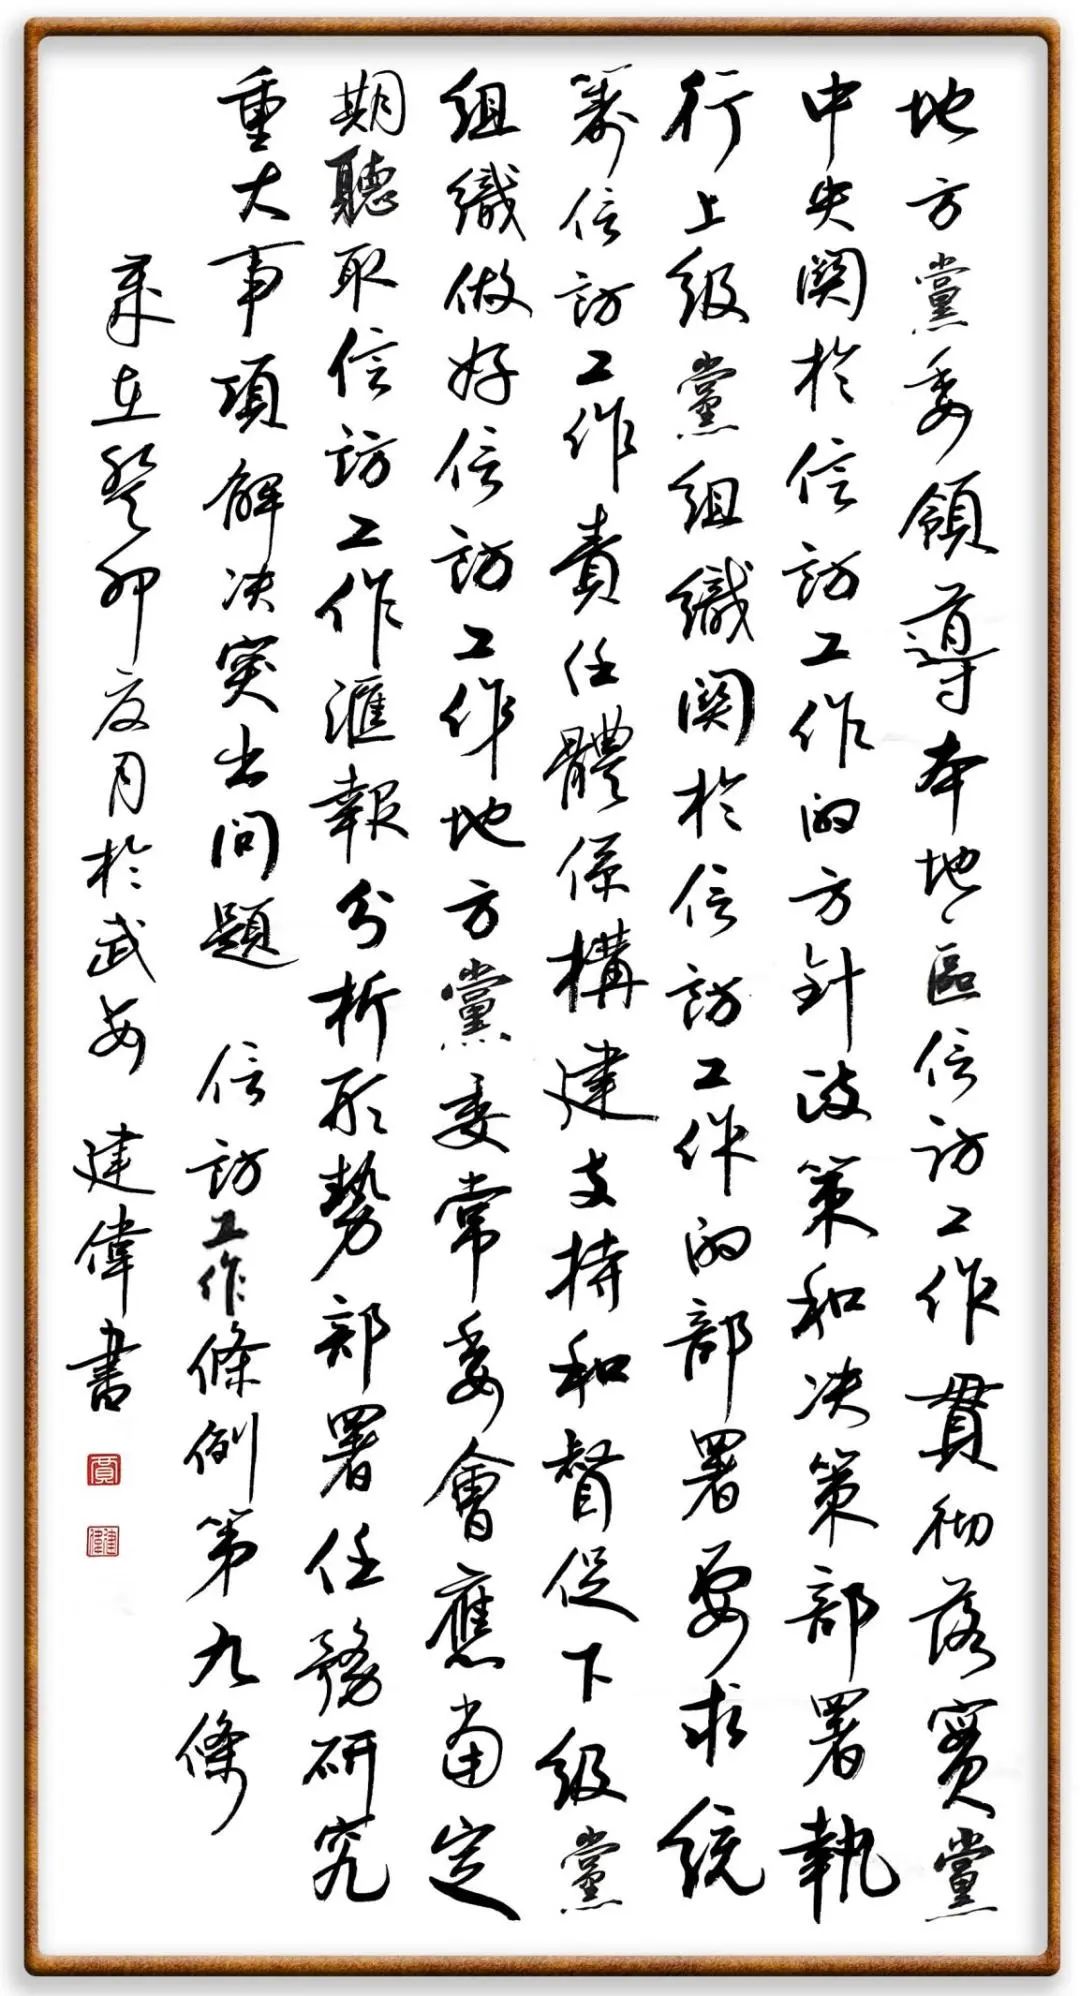 地方黨委領導本地區信訪工作貫彻落實黨
中央関於信訪工作的方針政策和决策部署執
行上級黨組織関於信訪工作的部署要求統
籌信訪工作責任體係構建支持和督促下級黨
組織做好信訪工作地方黨委常委會應當定
期聽取信訪工作滙報分析形勢部署任務研究
重大事項解决突出問題 信訪工作條例第九條
歲在癸卯夏月於武安 建偉書
建偉